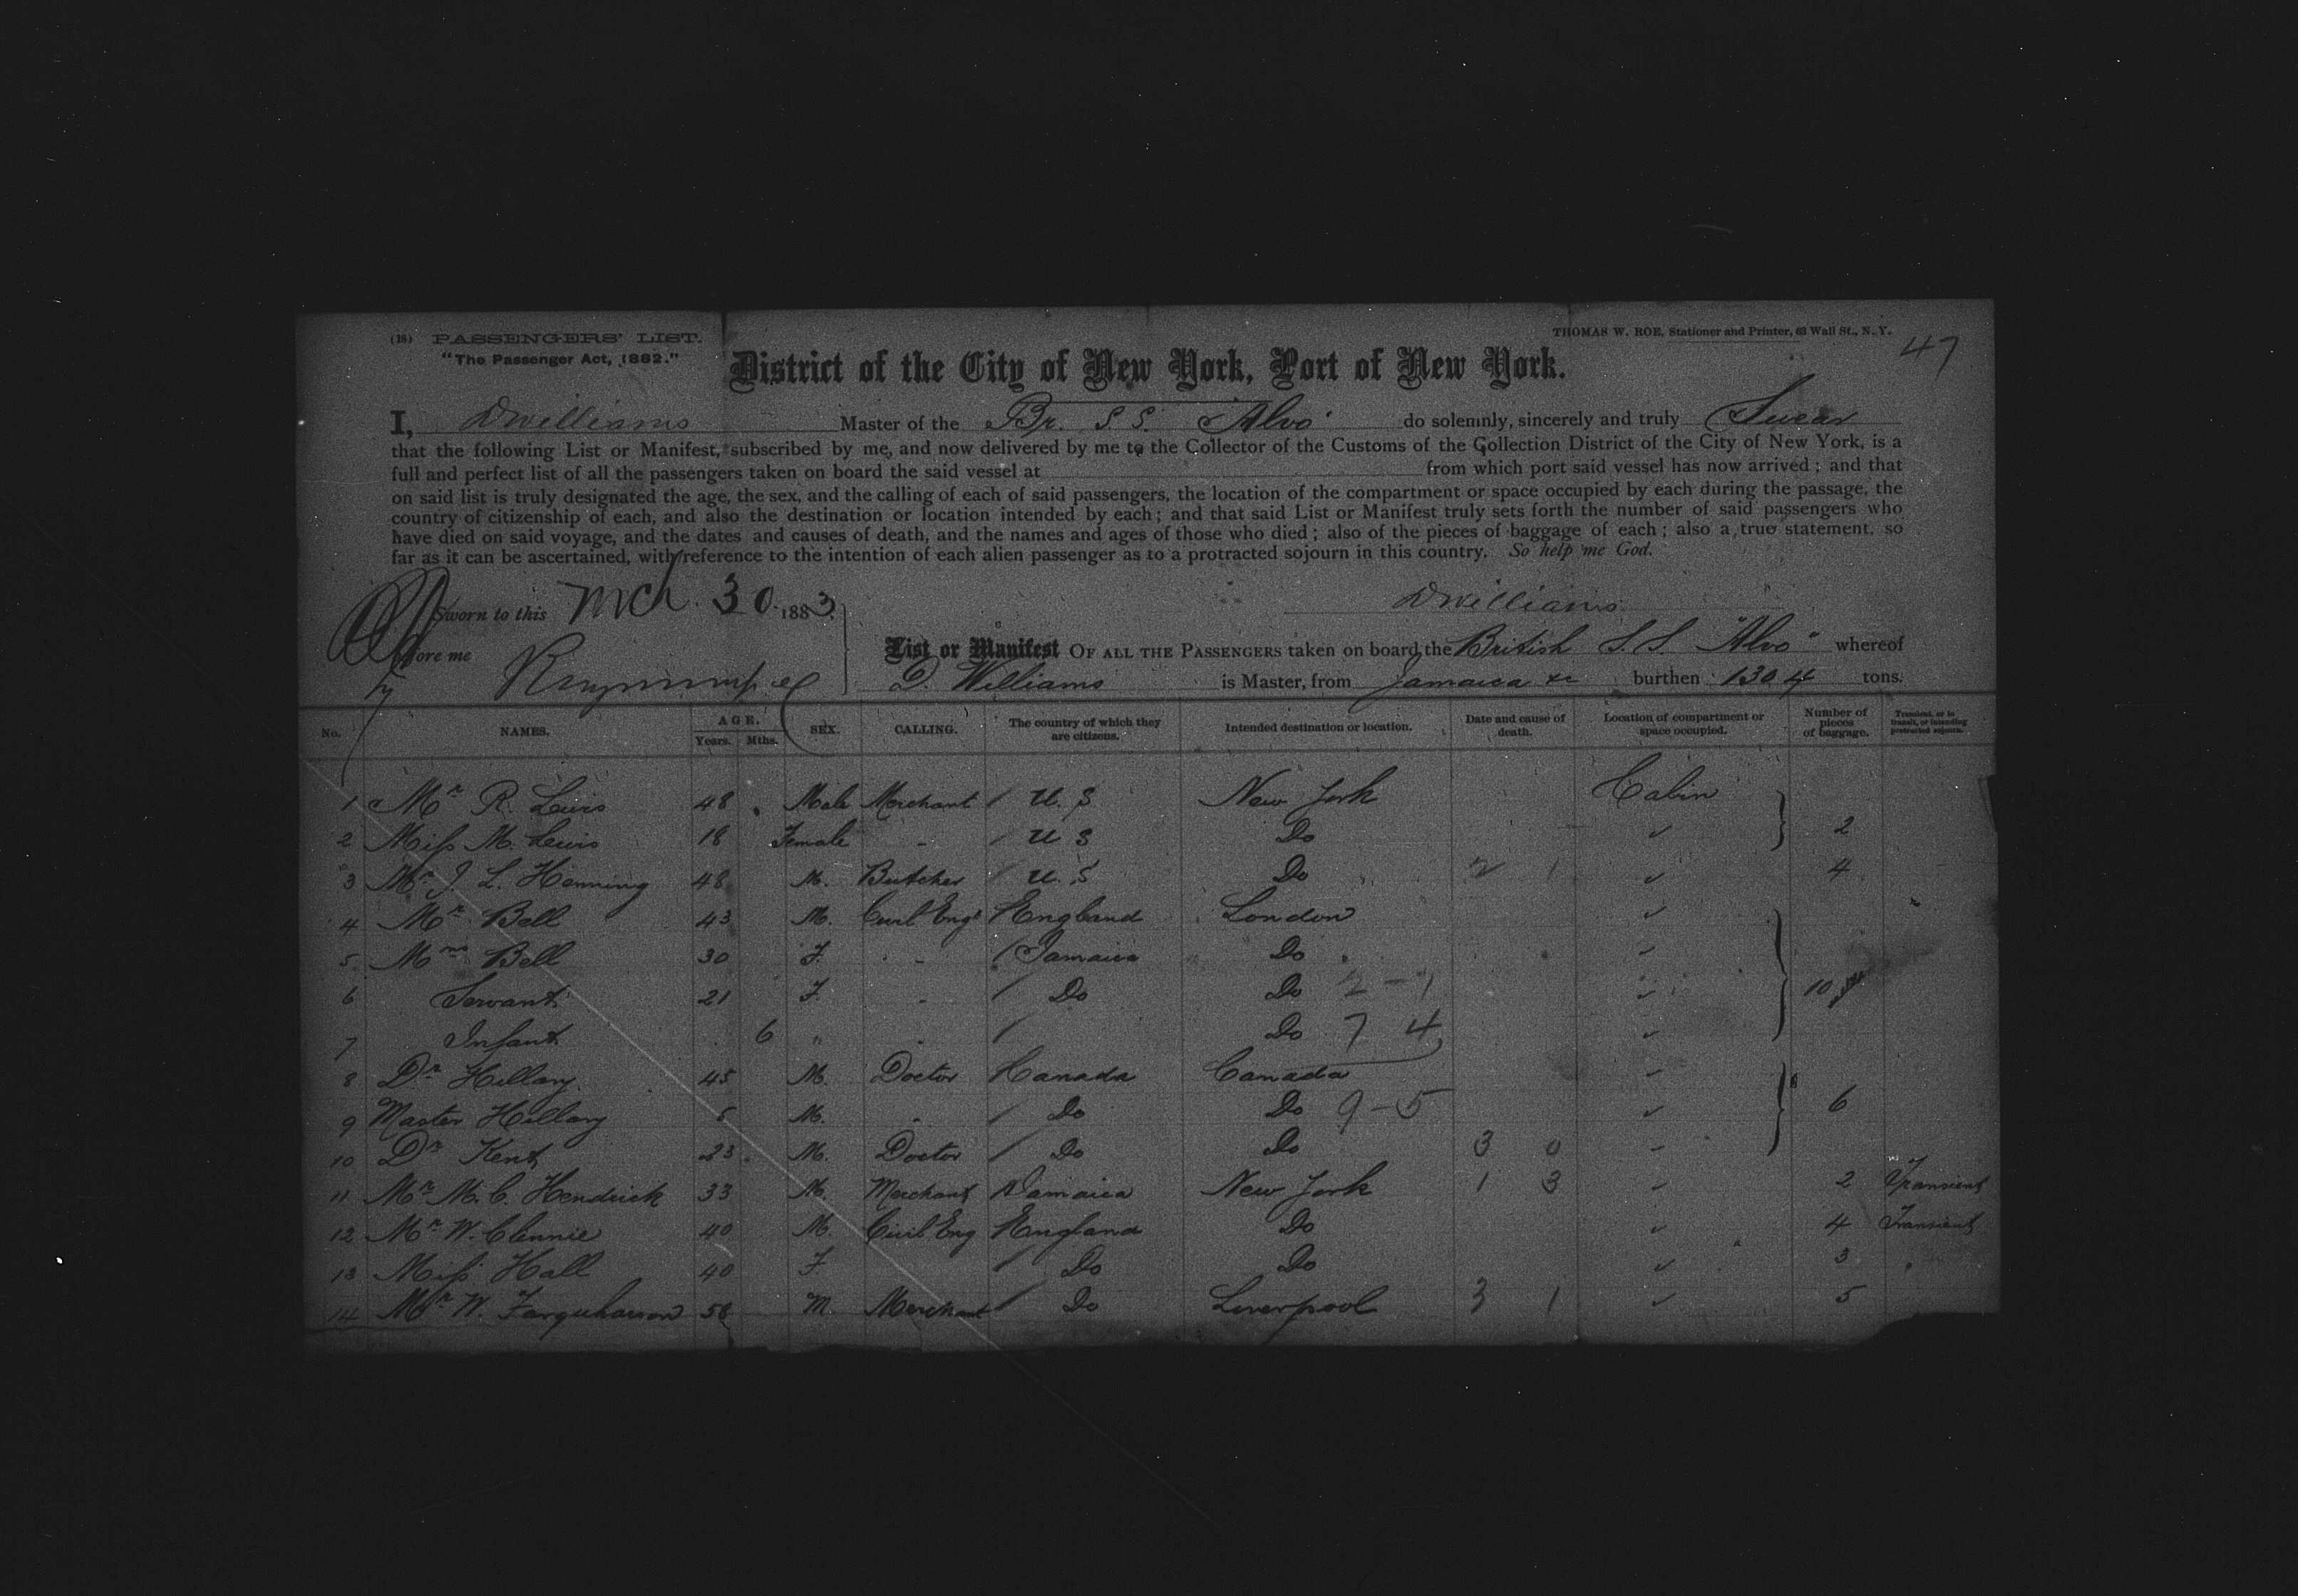 (18) PASSENGERS' LIST.
"The Passenger Act, 1882."
THOMAS W. ROE, Stationer and Printer, 63 Wall St., N. Y.
47
District of the City of New York, Port of New York.
I, D Williams Master of the Br. S.S. Alvo do solemnly, sincerely and truly Swear
that the following List or Manifest, subscribed by me, and now delivered by me to the Collector of the Customs of the Collection District of the City of New York, is a
full and perfect list of all the passengers taken on board the said vessel at from which port said vessel has now arrived; and that
on said list is truly designated the age, the sex, and the calling of each of said passengers, the location of the compartment or space occupied by each during the passage, the
country of citizenship of each, and also the destination or location intended by each; and that said List or Manifest truly sets forth the number of said passengers who
have died on said voyage, and the dates and causes of death, and the names and ages of those who died; also of the pieces of baggage of each; also a true statement, so
far as it can be ascertained, with reference to the intention of each alien passenger as to a protracted sojourn in this country. So help me God.
Sworn to this Mch. 30. 1883. D Williams
before me
List or Manifest OF ALL THE PASSENGERS taken on board the British S.S. "Alvo" whereof
D. Williams is Master, from Jamaica &c burthen 1304 tons.
No. NAMES. AGE. Years. Mths. SEX. CALLING. The country of which they are citizens. Intended destination or location. Date and cause of death. Location of compartment or space occupied. Number of pieces of baggage. Transient, or in transit, or intending protracted sojourn.
1 Mr R. Lewis 48 Male Merchant U.S New York Cabin
2 Miss M. Lewis 18 Female - U S Do ✓ 2
3 Mr J. L. Henning 48 M. Butcher U.S Do 2 1 ✓ 4
4 Mr Bell 43 M. Civil Engr England London ✓
5 Mrs Bell 30 F. - Jamaica Do ✓
6 Servant 21 F. - Do Do 2-1 ✓ 10
7 Infant 6 " Do 7 4 ✓
8 Dr Hillary 45 M. Doctor Canada Canada ✓
9 Master Hillary 5 M. Do Do 9-5 ✓ 6
10 Dr Kent 23 M. Doctor Do Do 3 0 -
11 Mr M. C. Hendrick 33 M. Merchant Jamaica New York 1 3 ✓ 2 Transient
12 Mr W. Clennie 40 M. Civil Eng England Do ✓ 4 Transient
13 Miss Hall 40 F. Do Do ✓ 3 "
14 Mr W. Farquharson 58 M. Merchant Do Liverpool 3 1 ✓ 5